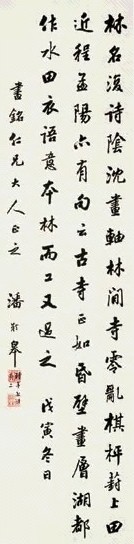 林君復詩陰沈畫軸林間寺零亂棋枰葑上田
近程孟陽亦有句云古寺正如昏壁畫層湖都
作水田衣語意本林而工又過之 戊寅冬日
畫銘仁兄大人正之 潘齡皋